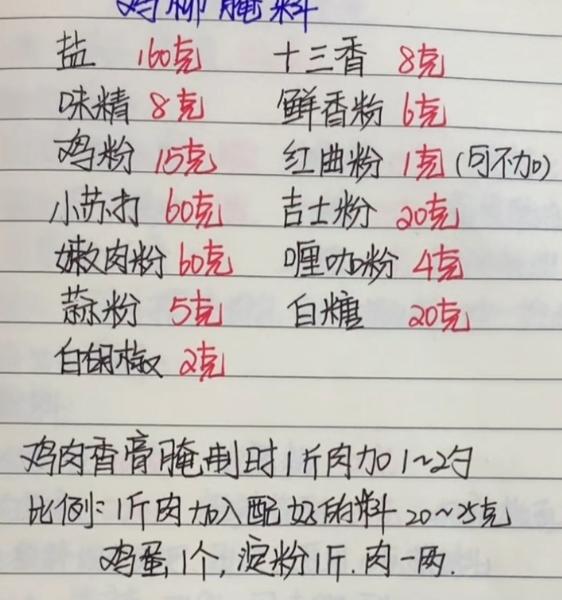 鸡柳腌料
盐 160克 十三香 8克
味精 8克 鲜香粉 6克
鸡粉 15克 红曲粉 1克(可不加)
小苏打 60克 吉士粉 20克
嫩肉粉 60克 咖喱粉 4克
蒜粉 5克 白糖 20克
白胡椒 2克
鸡肉香膏腌制时1斤肉加1~2勺
比例:1斤肉加入配好的料20~25克
鸡蛋1个,淀粉1斤.肉1两.